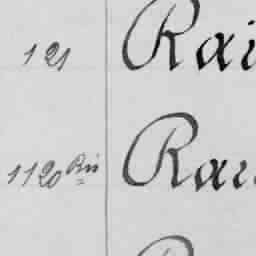 121 Rai
1120 Bis Rau